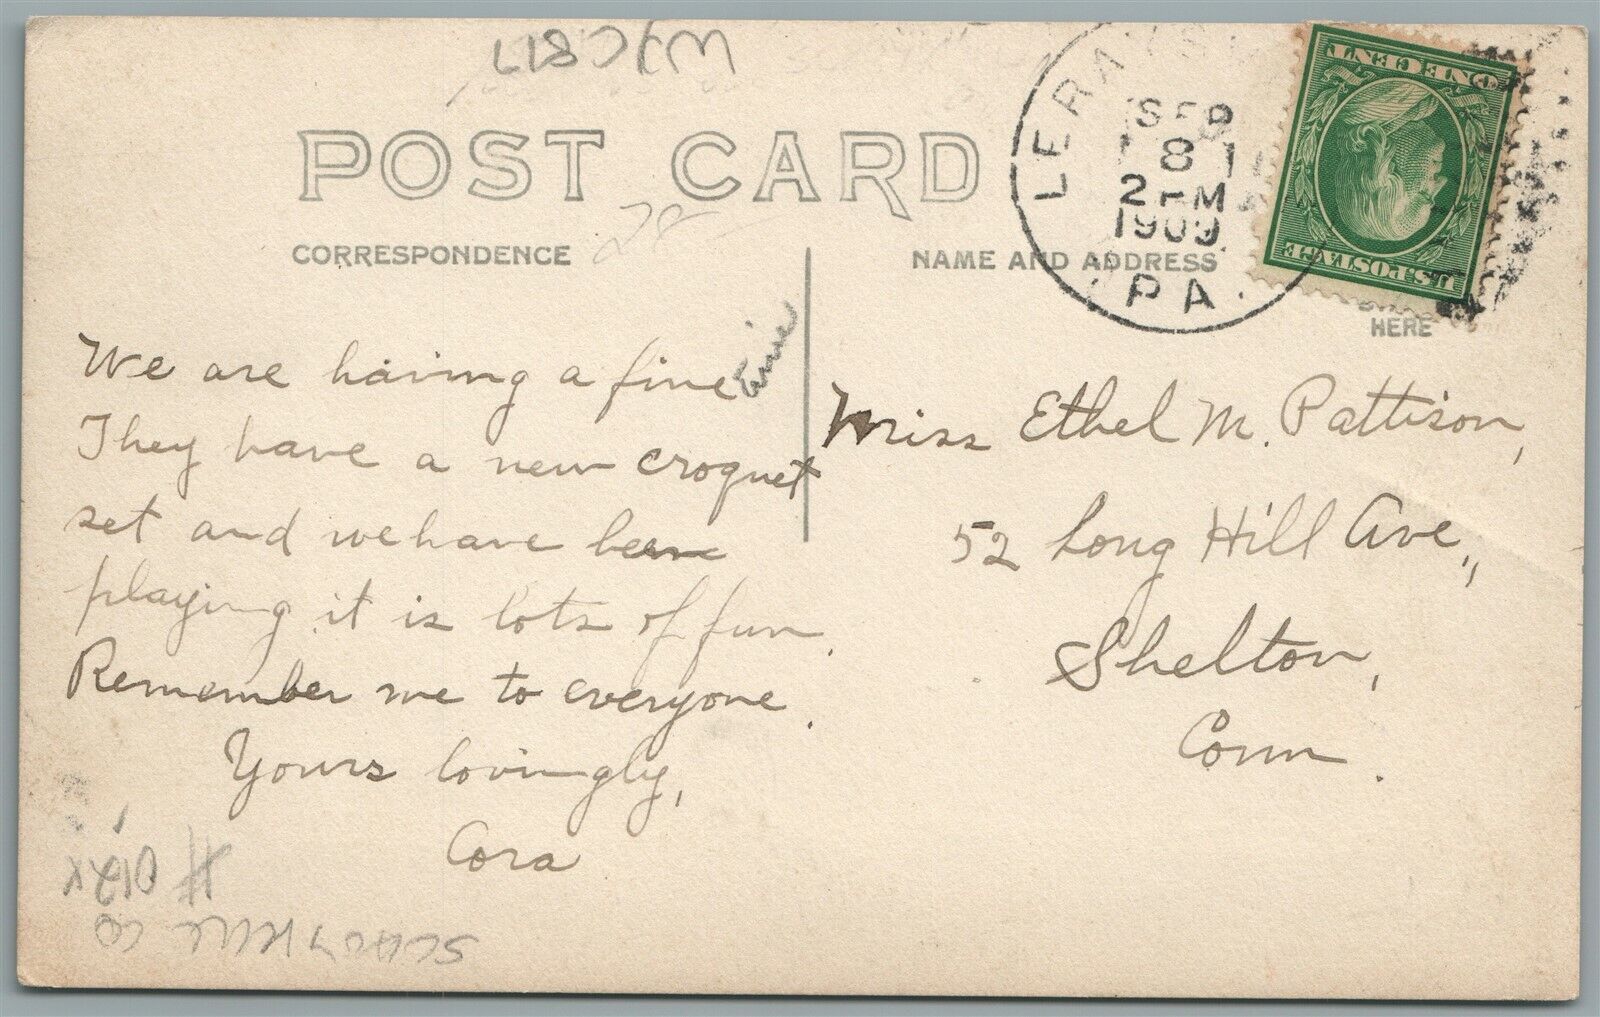 POST CARD
CORRESPONDENCE
NAME AND ADDRESS
HERE
SEP
8
2 PM
1909
PA.
ONE CENT
U.S. POSTAGE
28
We are having a fine time
They have a new croquet
set and we have been
playing it is lots of fun.
Remember me to everyone.
Yours lovingly,
Cora
Miss Ethel M. Pattison,
52 Long Hill Ave.,
Shelton,
Conn.
SCHUYKILL CO